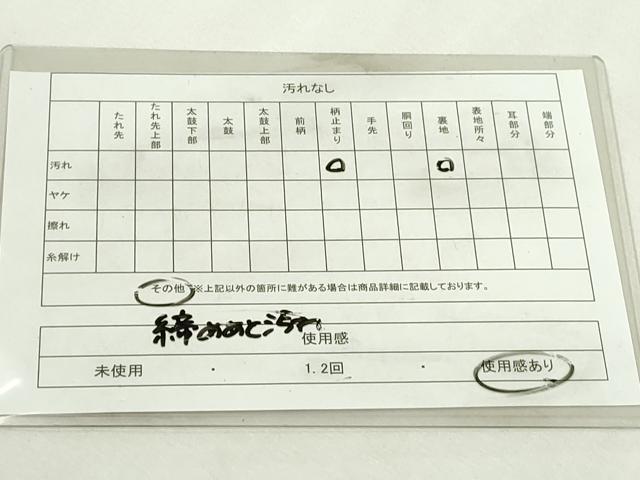 汚れなし
たれ先 たれ先上部 太鼓下部 太鼓 太鼓上部 前柄 柄止まり 手先 胴回り 裏地 表地所々 耳部分 端部分
汚れ
ヤケ
擦れ
糸解け
その他 ※上記以外の箇所に難がある場合は商品詳細に記載しております。
締めあと汚れ
使用感
未使用 ・ 1.2回 ・ 使用感あり